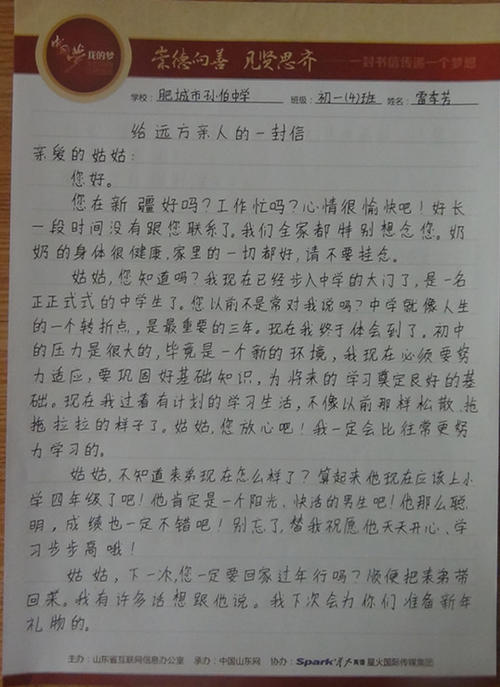 中国梦 我的梦
崇德向善 见贤思齐
一封书信传递一个梦想
学校：肥城市孙伯中学 班级：初一(4)班 姓名：雷冬芳
给远方亲人的一封信
亲爱的姑姑：
您好。
您在新疆好吗？工作忙吗？心情很愉快吧！好长
一段时间没有跟您联系了。我们全家都特别想念您。奶
奶的身体很健康，家里的一切都好，请不要挂念。
姑姑，您知道吗？我现在已经步入中学的大门了，是一名
正正式式的中学生了。您以前不是常对我说吗？中学就像人生
的一个转折点，是最重要的三年。现在我终于体会到了。初中
的压力是很大的，毕竟是一个新的环境，我现在必须要努
力适应，要巩固好基础知识，为将来的学习奠定良好的基
础。现在我过着有计划的学习生活，不像以前那样松散、拖
拖拉拉的样子了。姑姑，您放心吧！我一定会比往常更努
力学习的。
姑姑，不知道表弟现在怎么样了？算起来他现在应该上小
学四年级了吧！他肯定是一个阳光、快活的男生吧！他那么聪
明，成绩也一定不错吧！别忘了，替我祝愿他天天开心、学
习步步高哦！
姑姑，下一次，您一定要回家过年行吗？顺便把表弟带
回来。我有许多话想跟他说。我下次会为你们准备新年
礼物的。
主办：山东省互联网信息办公室 承办：中国山东网 协办：Spark星火英语 星火国际传媒集团